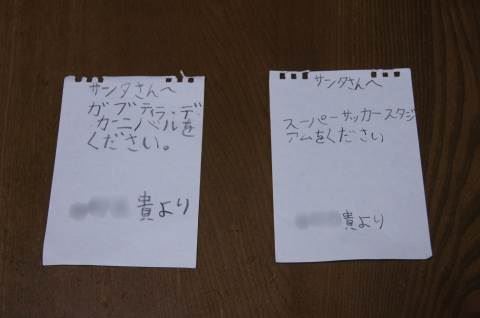 サンタさんへ
ガブティラ・デ・
カーニバルを
ください。
貴より
サンタさんへ
スーパーサッカースタジ
アムをください
貴より